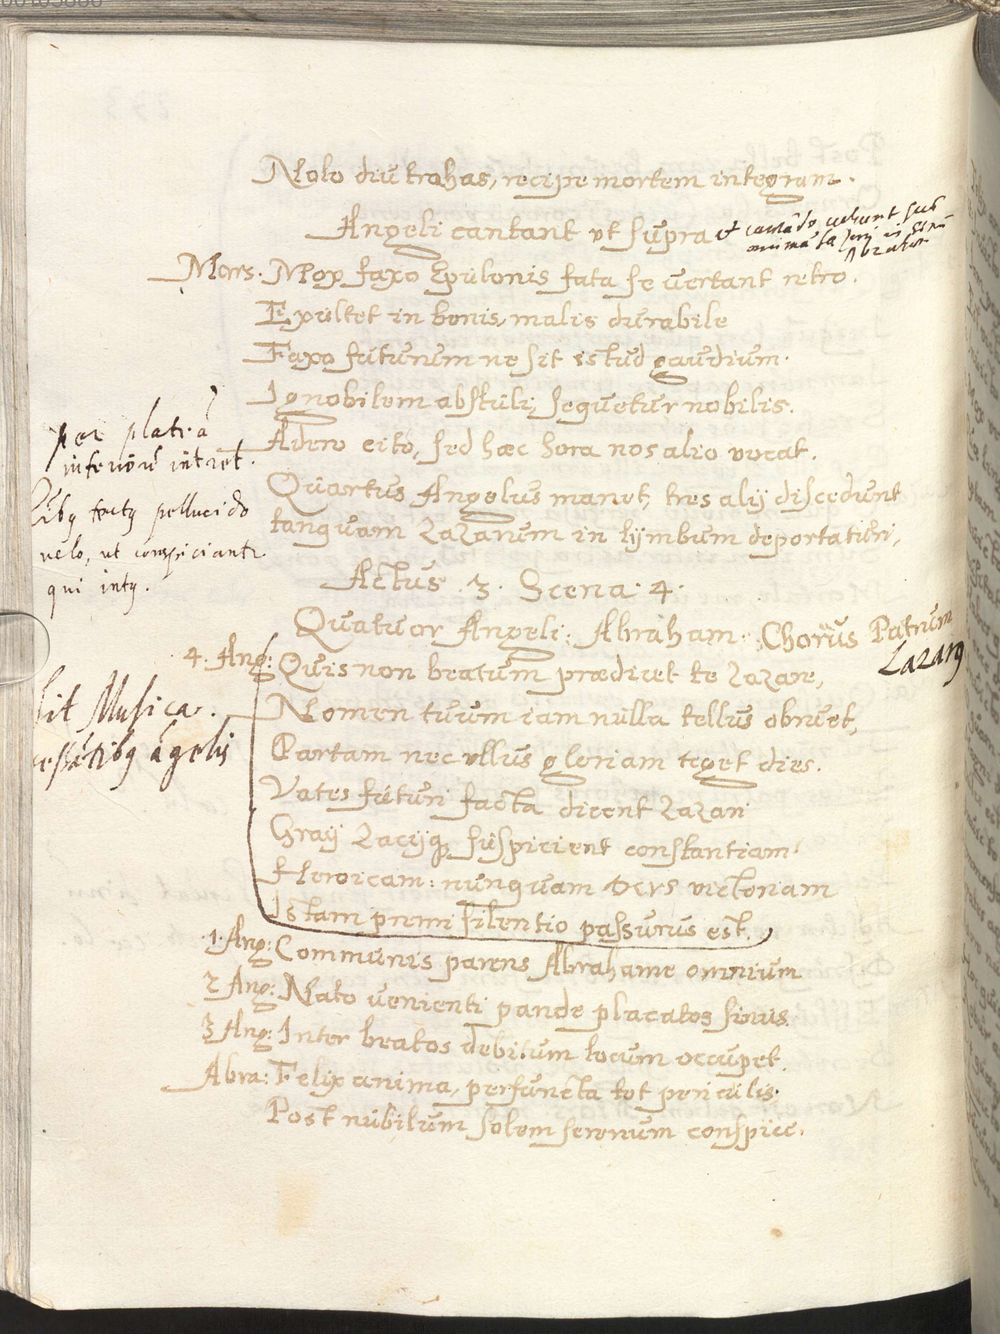 Nolo diu trahas, recipe mortem integram.
Angeli cantant ut supra & cantãdo vehunt sub
Abrahæ
Mors. Mox faxo Epulonis fata se vertant retro.
Exultet in bonis, malis durabile
Faxo futurum ne sit istud gaudium.
Ignobilem abstuli, sequetur nobilis.
Adero cito, sed hæc hora nos alio vocat.
per plateã
inferiorẽ intret.
Quartus Angelus manet, tres alij discedunt
tanquam Lazarum in lymbum deportaturi,
pellucido
velo, ut conspiciantr
qui intq.
Actus .3. Scena .4.
Quatuor Angeli. Abraham. Chorus Patrum
Lazarq
4. Ang: Quis non beatum prædicet te Lazare,
Nomen tuum iam nulla tellus obruet,
Partam nec ullus gloriam teget dies.
sit Musica.
cessãtibq ãgelis
Vates futuri facta dicent Lazari
Graij Lacijq, suspicient constantiam
Heroicam: nunquam DEVS victoriam
Istam premi silentio passurus est.
1. Ang: Communis parens Abrahame omnium
2 Ang: Nato venienti pande placatos sinus.
3 Ang: Inter beatos debitum locum occupet.
Abra: Felix anima, perfuncta tot periculis
Post nubilum solem serenum conspice.